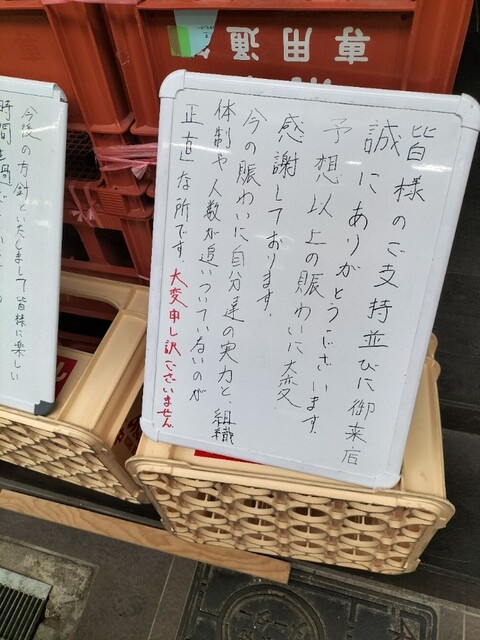 皆様のご支持並びに御来店
誠にありがとうございます。
予想以上の賑わいに大変
感謝しております。
今の賑わいに自分達の実力と、組織
体制や人数が追いついていないのが
正直な所です。大変申し訳ございません
今後の方針といたしまして皆様に楽しい
時間を過ご
専用通